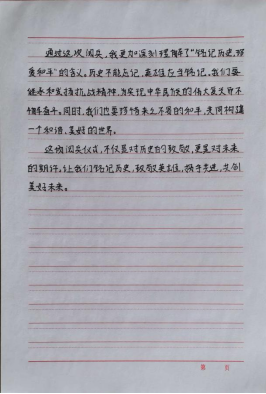 通过这次阅兵，我更加深刻理解了“铭记历史，珍
爱和平”的含义。历史不能忘记，英雄应当铭记。我们要
继承和发扬抗战精神，为实现中华民族的伟大复兴而
懈奋斗。同时，我们也要珍惜来之不易的和平，共同构建
一个和谐、美好的世界。
这场阅兵仪式，不仅是对历史的致敬，更是对未来
的期许。让我们铭记历史，致敬英雄，携手先进，共创
美好未来。
第 页